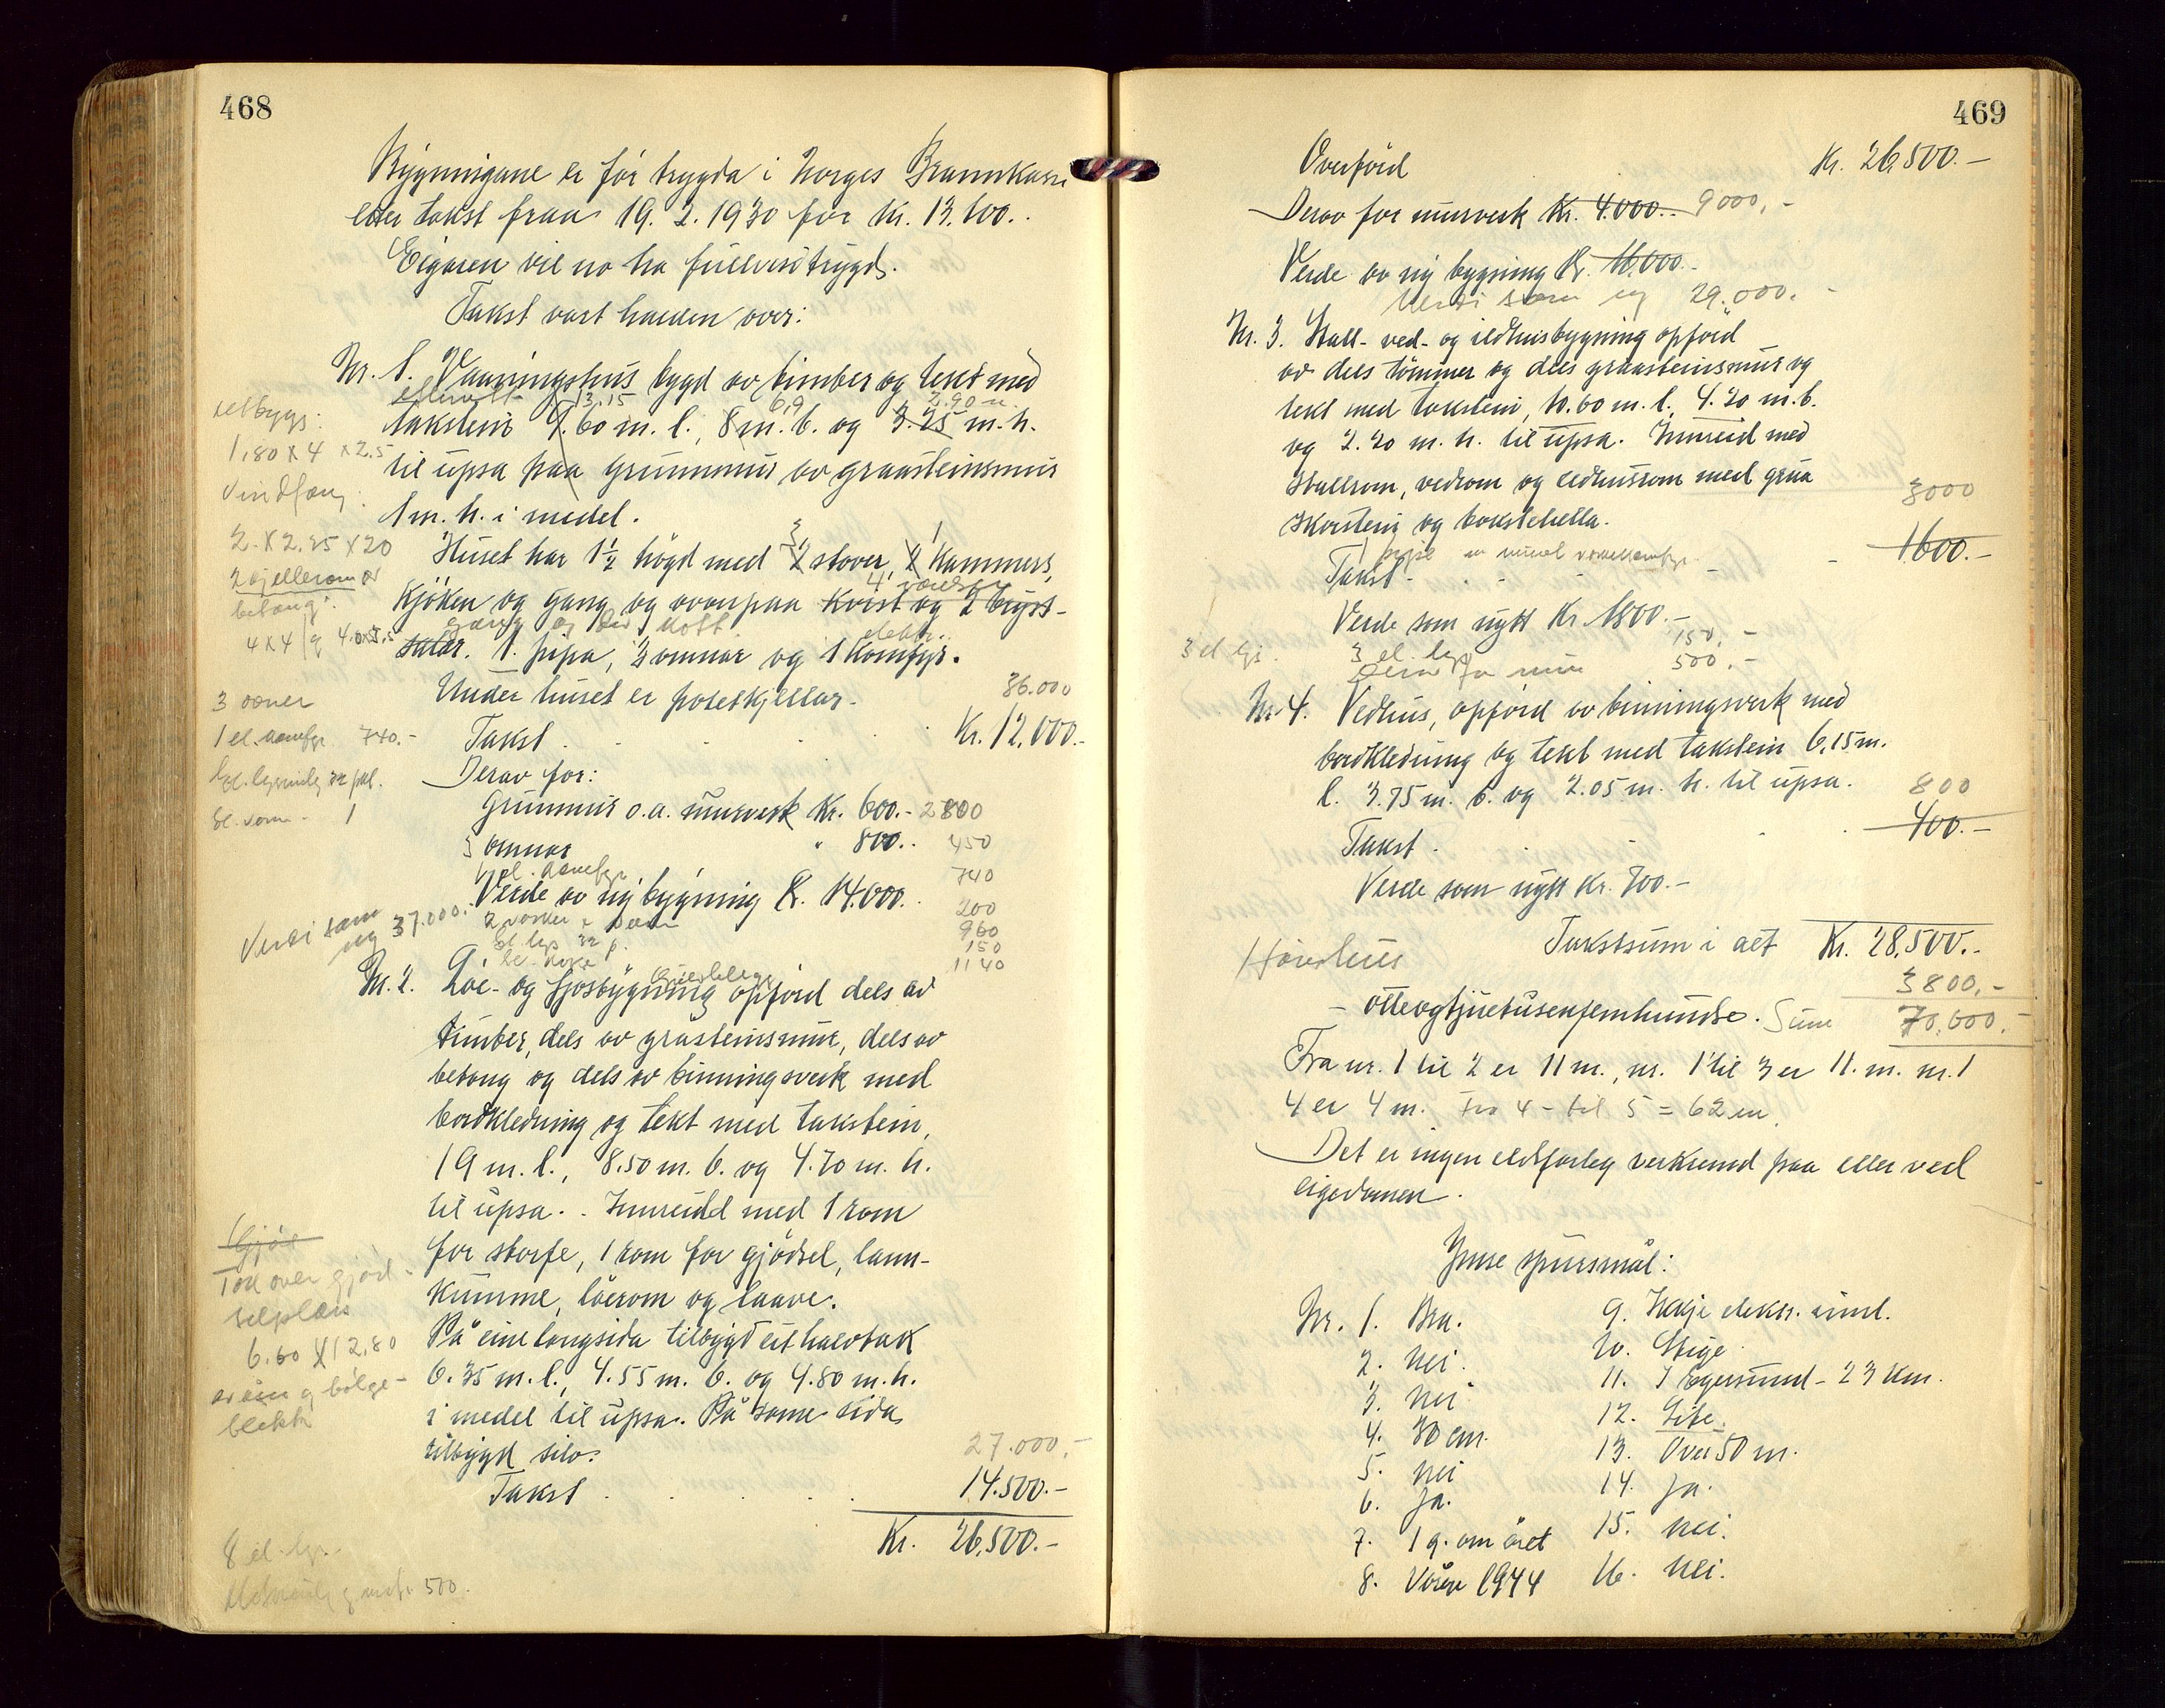 468
Bygningane er før trygda i Norges Brannkasse
etter takst fraa 19. 2. 1930 for kr. 13,600..
Eigaren vil no ha fullverditrygd.
Takst vart halden over:
Nr. 1. Vaaningshus bygd av timber og tekt med
13.15 6,9 2.90 m.
takstein 9.60 m. l., 8 m. b. og 3.25 m. h.
til upsa paa grunnmur av graasteinsmur
1 m. h. i medel.
3 1
Huset har 1½ høgd med 2 stover, 2 kammers,
4 værelser
kjøken og gang og ovanpaa kvist og 2 bryst-
gang og loft elektr.
salar. 1. pipa, 3 omnar og 1 komfyr.
Under huset er potetkjellar.
36.000
Takst . . . . Kr. 12,000.-
Derav for:
Grunnmur o.a. murverk Kr. 600.- 2800
3 omnar " 800.. 450
1 el. komfyr 740
Verde av ny bygning K. 14.000.. 200
2 vasker 960
el. lys 32 p. 150
1140
Nr. 2. Løe- og fjosbygning oppførd dels av
timber, dels av gråsteinsmur, dels av
betong og dels av binningsverk med
bordkledning og tekt med takstein,
19 m. l., 8.50 m. b. og 4.70 m. h.
til upsa. . Innreidd med 1 rom
for storfe, 1 rom for gjødsel, lann-
kumme, løerom og laave.
På eine langsida tilbygd eit halvtak
6.35 m. l., 4.55 m. b. og 4.80 m. h.
i medel til upsa. På same sida
tilbygd silo.
27.000,-
Takst . . . . . 14.500.-
Kr. 26,500.-
tilbygg:
1,80 x 4 x 2.5
Vindfang:
2 x 2.25 x 20
2 kjellerom av
betong:
4 x 4 og 4.0x3.5
3 ovner
1 el. komfyr 740.-
el. ovn - 1
Verdi som
ny 37.000.-
Gjø
Tak over gjød-
selplass
6.60 x 12.80
og bølge-
blekk
8 el. lys.
500.
469
Overførd Kr. 26,500.-
Derav for murverk Kr. 4.000.. 9000,-
Verde av ny bygning Kr. 16,000.-
Verdi som ny 29.000.-
Nr. 3. Stall- ved- og eldhusbygning oppførd
av dels tømmer og dels graasteinsmur og
tekt med takstein, 10.60 m. l. 4.20 m. b.
og 2.20 m. h. til upsa. Innreid med
stallrom, vedrom og eldhusrom med grua
3000
skorstein og bakstehella.
1 pipe
Takst - . . - - 1600.-
Verde som nytt Kr. 1800.-
3 el. lys. 3 el. lys 150,-
Derav for mur 500,-
Nr. 4. Vedhus, oppførd av binningsverk med
bordkledning og tekt med takstein 6,15 m.
l. 3.75 m. b. og 2.05 m. h. til upsa.
800
Takst . . . 400.-
Verde som nytt Kr. 700.-
Takstsum i alt Kr. 28,500.-
Hønehus 3800,-
- åtteogtjuetusenfemhundre. Sum 70.600.-
Fra nr. 1 til 2 er 11 m., nr. 1 til 3 er 11. m. nr. 1
4 er 4 m. fra 4 - til 5 = 62 m.
Det er ingen eldsfarleg verksemd paa eller ved
eigedomen.
Ymse spursmål:
Nr. 1. Bra.
2. Nei.
3. Nei
4. 30 cm.
5. Nei
6. Ja.
7. 1 g. om året
8. Våren 1944
9. Ikkje elektr. innl.
10. Stige
11. I Egersund - 23 km.
12. Lite.
13. Over 50 m.
14. Ja.
15. Nei.
16. Nei.